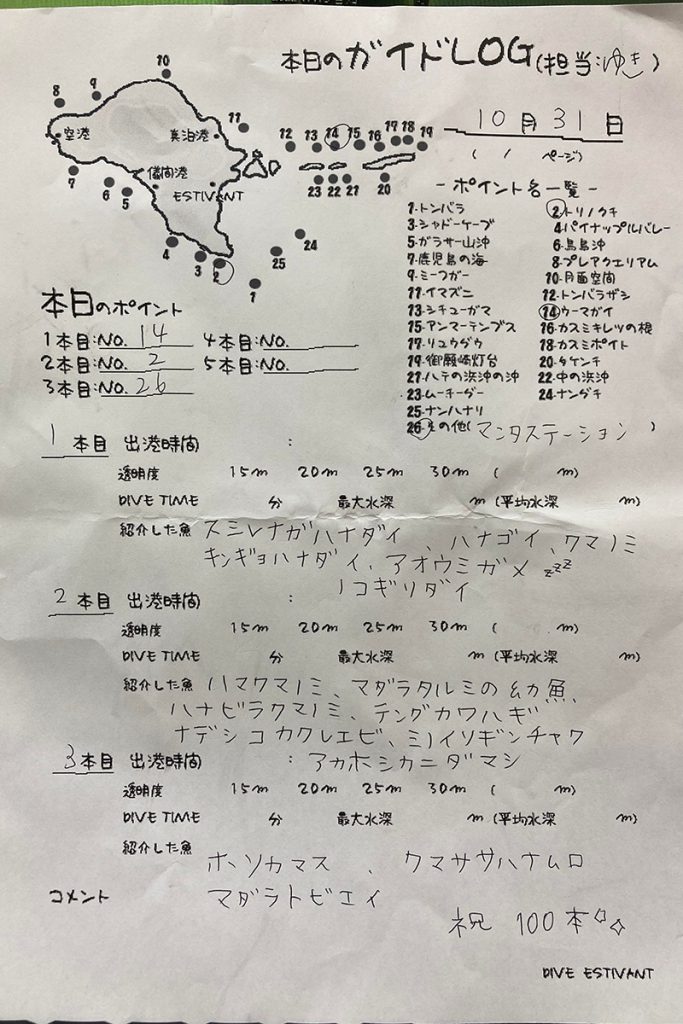 本日のガイドLOG(担当:ゆき)
10月31日
( / ページ)
8 9 10 11 12 13 14 15 16 17 18 19
空港 真泊港
儀間港
ESTIVANT
7 6 5 4 3 2 1 25 24 23 22 21 20
-ポイント名一覧-
1.トンバラ ②トリノクチ
3.シャドーケーブ 4.パイナップルバレー
5.ガラサー山沖 6.鳥島沖
7.鹿児島の海 8.プレアクエリアム
9.ミーフガー 10.月面空間
11.イマズニ 12.トンバラザシ
13.シチューガマ ⑭ウーマガイ
15.アンマーテンブス 16.カスミキレツの根
17.リュウダウ 18.カスミポイント
19.御願崎灯台 20.タケンチ
21.ハテの浜沖の沖 22.中の浜沖
23.ムーチーダー 24.ナンダキ
25.ナンハナリ
26.その他(マンタステーション )
本日のポイント
1本目:NO. 14 4本目:NO.
2本目:NO. 2 5本目:NO.
3本目:NO. 26
1本目 出港時間 :
透明度 15m 20m 25m 30m ( m)
DIVE TIME 分 最大水深 m (平均水深 m)
紹介した魚 スミレナガハナダイ、ハナゴイ、クマノミ
キンギョハナダイ、アオウミガメ zzz
ノコギリダイ
2本目 出港時間 :
透明度 15m 20m 25m 30m ( m)
DIVE TIME 分 最大水深 m (平均水深 m)
紹介した魚 ハマクマノミ、マダラタルミの幼魚
ハナビラクマノミ、テングカワハギ
ナデシコカクレエビ、ミノイソギンチャク
3本目 出港時間 : アカホシカニダマシ
透明度 15m 20m 25m 30m ( m)
DIVE TIME 分 最大水深 m (平均水深 m)
紹介した魚 ホソカマス、クマササハナムロ
マダラトビエイ
コメント
祝 100本
DIVE ESTIVANT